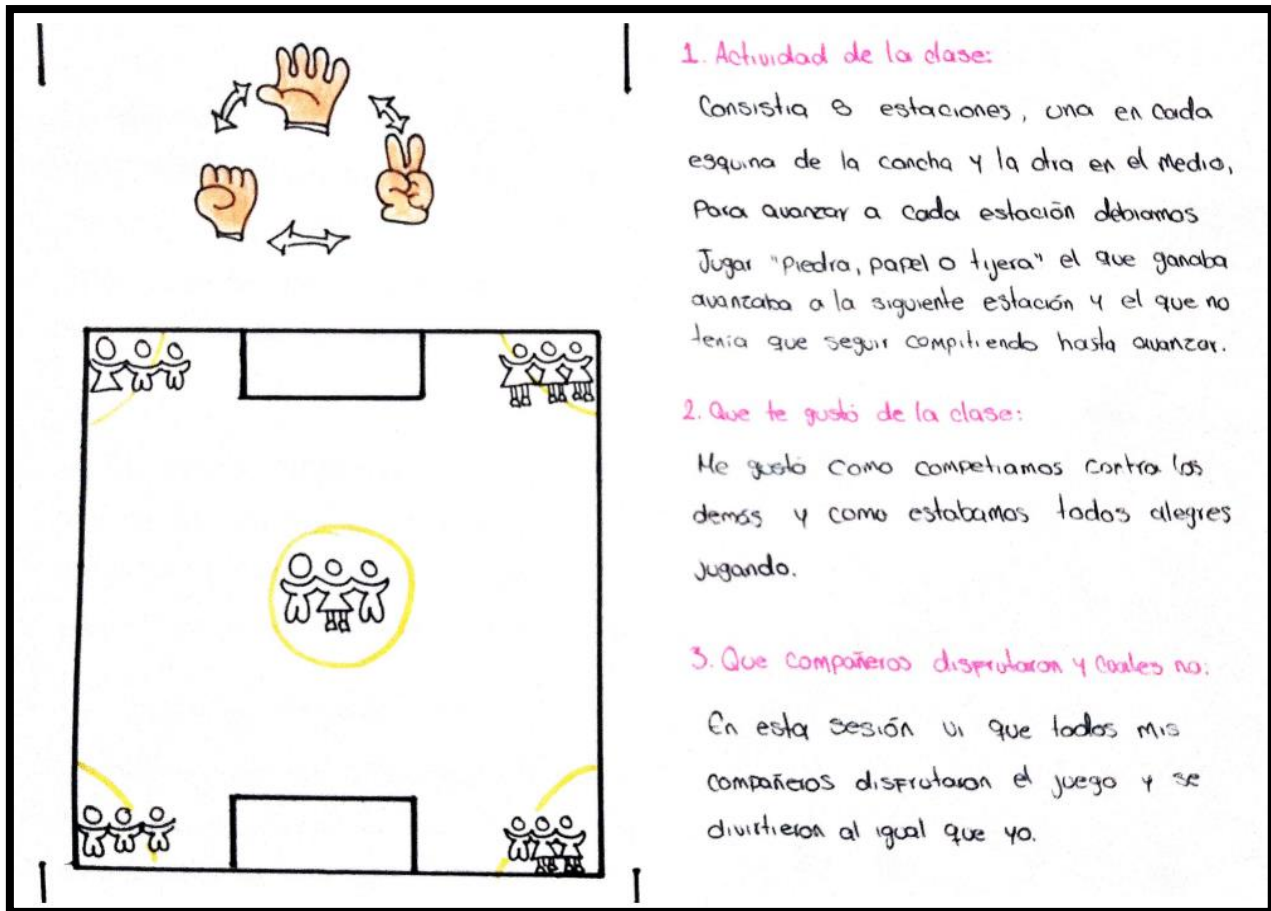 1. Actividad de la clase:
Consistia 5 estaciones, una en cada
esquina de la cancha y la otra en el medio,
Para avanzar a cada estación debiamos
Jugar "Piedra, papel o tijera" el que ganaba
avanzaba a la siguiente estación y el que no
tenia que seguir compitiendo hasta avanzar.
2. Que te gustó de la clase:
Me gustó como competiamos contra los
demás y como estabamos todos alegres
Jugando.
3. Que compañeros disfrutaron y cuales no:
En esta sesión vi que todos mis
compañeros disfrutaron el juego y se
divirtieron al igual que yo.